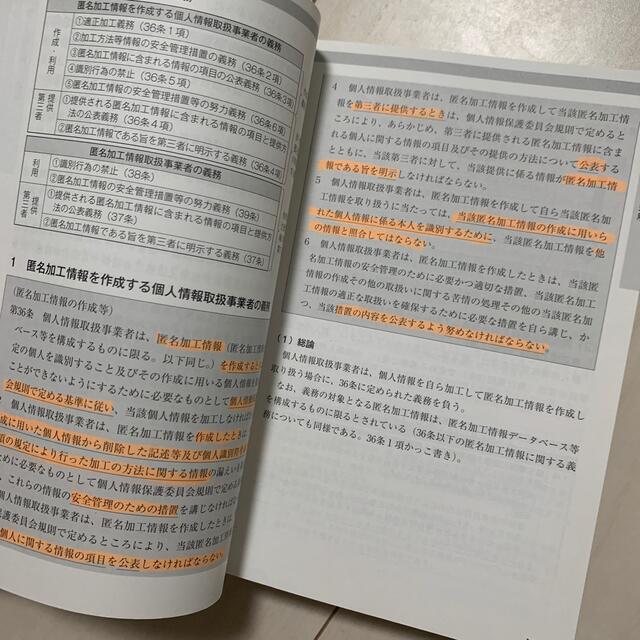 匿名加工情報を作成する個人情報取扱事業者の義務
作成・利用
①適正加工義務（36条1項）
②加工方法等情報の安全管理措置の義務（36条2項）
③匿名加工情報に含まれる情報の項目の公表義務（36条3項）
④識別行為の禁止（36条5項）
⑤匿名加工情報の安全管理措置等の努力義務（36条6項）
第三者提供
①提供される匿名加工情報に含まれる情報の項目と提供方
法の公表義務（36条4項）
②匿名加工情報である旨を第三者に明示する義務（36条4項）
匿名加工情報取扱事業者の義務
利用
①識別行為の禁止（38条）
②匿名加工情報の安全管理措置等の努力義務（39条）
第三者提供
①提供される匿名加工情報に含まれる情報の項目と提供方
法の公表義務（37条）
②匿名加工情報である旨を第三者に明示する義務（37条）
1 匿名加工情報を作成する個人情報取扱事業者の義務
（匿名加工情報の作成等）
第36条 個人情報取扱事業者は、匿名加工情報（匿名加工情
ベース等を構成するものに限る。以下同じ。）を作成すると
定の個人を識別すること及びその作成に用いる個人情報を
ことができないようにするために必要なものとして個人情報
会規則で定める基準に従い、当該個人情報を加工しなければな
個人情報取扱事業者は、匿名加工情報を作成したときは、
成に用いた個人情報から削除した記述等及び個人識別符号
項の規定により行った加工の方法に関する情報の漏えいを
ために必要なものとして個人情報保護委員会規則で定める
、これらの情報の安全管理のための措置を講じなければな
個人情報取扱事業者は、匿名加工情報を作成したときは、
保護委員会規則で定めるところにより、当該匿名加工情
個人に関する情報の項目を公表しなければならない。
4 個人情報取扱事業者は、匿名加工情報を作成して当該匿名加工情
報を第三者に提供するときは、個人情報保護委員会規則で定めると
ころにより、あらかじめ、第三者に提供される匿名加工情報に含ま
れる個人に関する情報の項目及びその提供の方法について公表する
とともに、当該第三者に対して、当該提供に係る情報が匿名加工情
報である旨を明示しなければならない。
5 個人情報取扱事業者は、匿名加工情報を作成して自ら当該匿名加
工情報を取り扱うに当たっては、当該匿名加工情報の作成に用いら
れた個人情報に係る本人を識別するために、当該匿名加工情報を他
の情報と照合してはならない。
6 個人情報取扱事業者は、匿名加工情報を作成したときは、当該匿
名加工情報の安全管理のために必要かつ適切な措置、当該匿名加工
情報の作成その他の取扱いに関する苦情の処理その他の当該匿名加
工情報の適正な取扱いを確保するために必要な措置を自ら講じ、か
つ、当該措置の内容を公表するよう努めなければならない。
（1）総論
個人情報取扱事業者は、個人情報を自ら加工して匿名加工情報を作成し
取り扱う場合に、36条に定められた義務を負う。
なお、義務の対象となる匿名加工情報は、匿名加工情報データベース等
を構成するものに限るとされている（36条以下の匿名加工情報に関する義
務についても同様である。36条1項かっこ書き）。